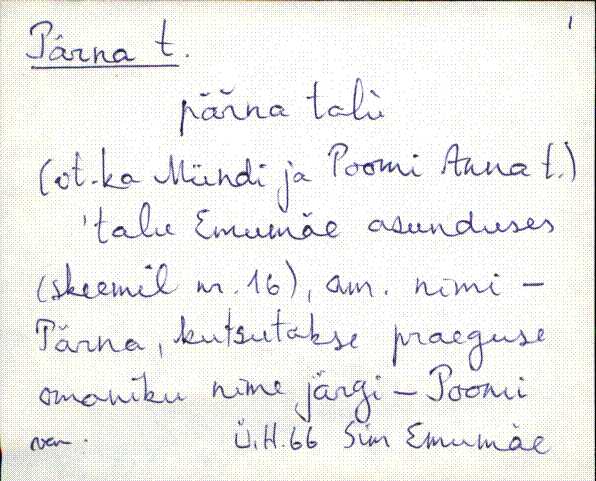 1
Pärna t.
pä̆r̆na talù
(vt. ka Mündi ja Poomi Anna t.)
'talu Emumäe asunduses
(skeemil nr. 16), am. nimi –
Pärna, kutsutakse praeguse
omaniku nime järgi – Poomi
Ü.H.66 Sim Emumäe